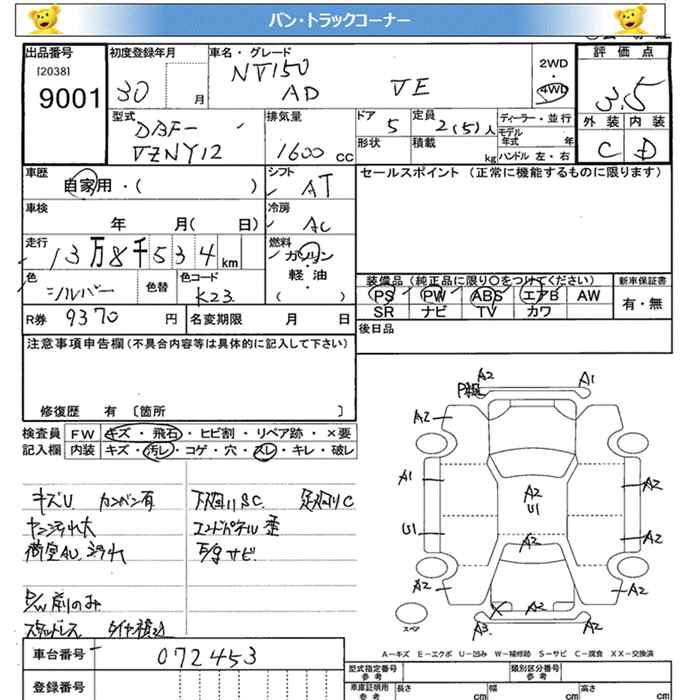 バン・トラックコーナー
出品番号
[2038]
9001
初度登録年月
30 月
車名・グレード
NV150
AD VE
2WD
・
4WD
評価点
3.5
外装 内装
C D
型式
DBF-
VZNY12
排気量
1600 cc
ドア 5
形状
定員 2(5)人
積載 kg
ディーラー・並行
モデル年式 年
ハンドル 左・右
車歴
自家用・( )
シフト
AT
セールスポイント (正常に機能するものに限ります)
車検
年 月( 日)
冷房
AC
走行
13万8千534km
燃料
ガソリン
軽・油
( )
色
シルバー
色替
色コード
K23
装備品 (純正品に限り○をつけてください)
PS PW ABS エアB AW
SR ナビ TV カワ
新車保証書
有・無
R券 9370 円
名変期限 月 日
後日品
注意事項申告欄(不具合内容等は具体的に記入して下さい)
修復歴 有 〔箇所 〕
検査員 FW キズ・飛石・ヒビ割・リペア跡・×要
記入欄 内装 キズ・汚レ・コゲ・穴・スレ・キレ・破レ
キズU カンバン有
下廻りSC 足廻りC
ヤニ汚れ大
エンドパネル歪
荷室AU、汚れ
下廻サビ
P/W前のみ
スタッドレス タイヤ積込
A2
A1
A2
A1
A2
A2
U1
U1
A2
A2
A2
A2
X
A2
A3
A2
スペア
A-キズ E-エクボ U-凹み W-補修跡 S-サビ C-腐食 XX-交換済
車台番号 072453
登録番号
型式指定番号
参考
類別区分番号
参考
車庫証明用
参考
長さ cm
幅 cm
高さ cm